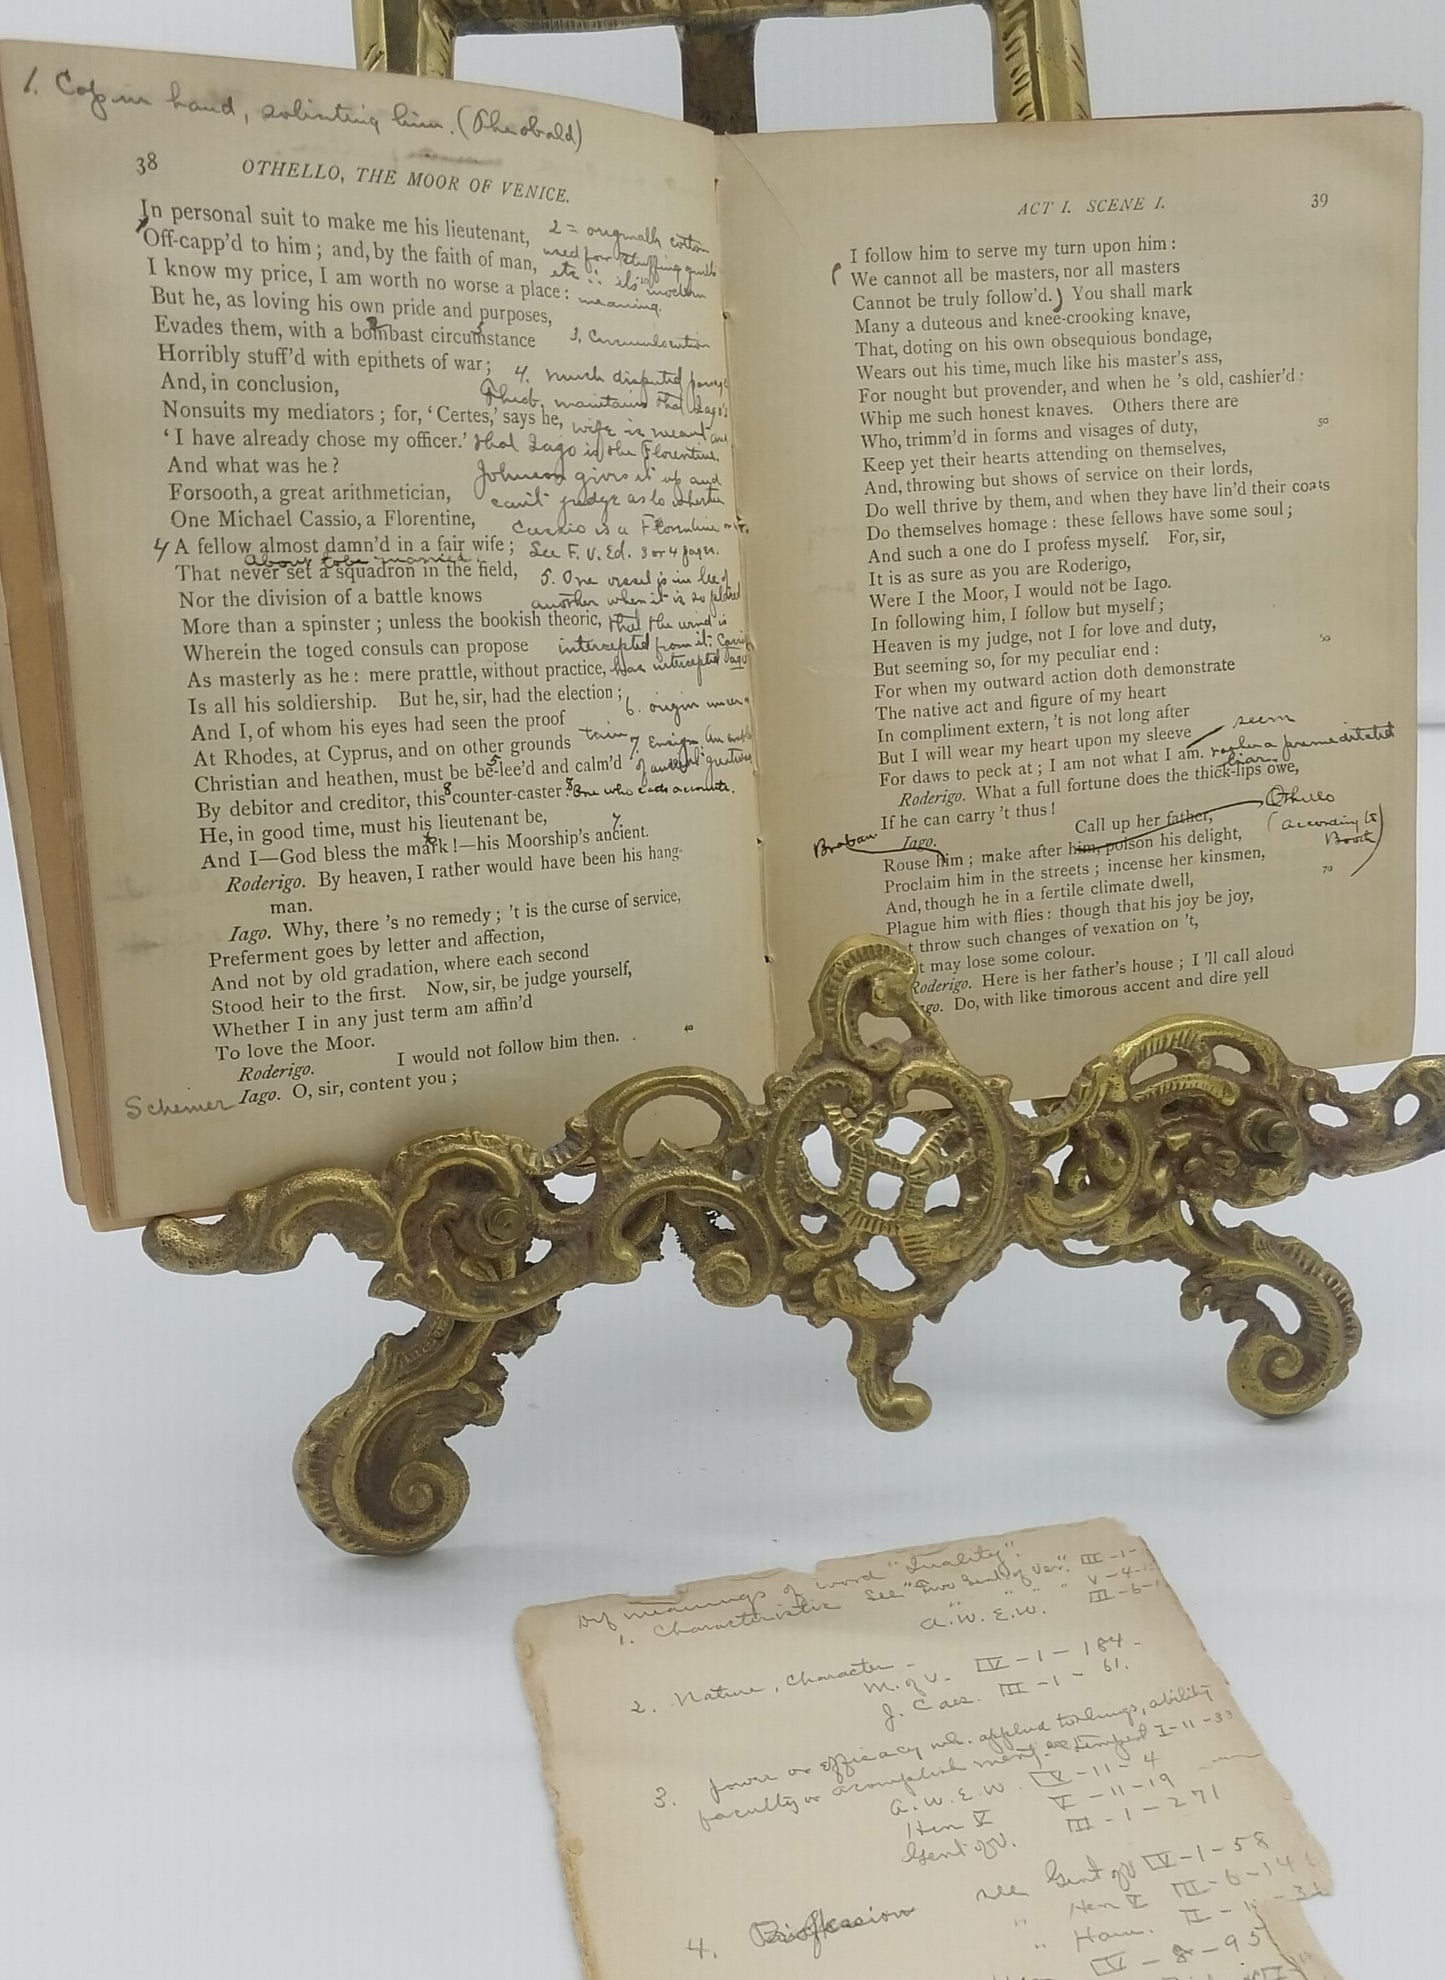 1. Cap in hand, soliciting him. (Theobald)
38 OTHELLO, THE MOOR OF VENICE.
In personal suit to make me his lieutenant,
Off-capp'd to him; and, by the faith of man,
I know my price, I am worth no worse a place:
But he, as loving his own pride and purposes,
Evades them, with a bombast circumstance
Horribly stuff'd with epithets of war;
And, in conclusion,
Nonsuits my mediators; for, 'Certes,' says he,
'I have already chose my officer.'
And what was he?
Forsooth, a great arithmetician,
One Michael Cassio, a Florentine,
4 A fellow almost damn'd in a fair wife;
About to be married
That never set a squadron in the field,
Nor the division of a battle knows
More than a spinster; unless the bookish theoric,
Wherein the toged consuls can propose
As masterly as he: mere prattle, without practice,
Is all his soldiership. But he, sir, had the election;
And I, of whom his eyes had seen the proof
At Rhodes, at Cyprus, and on other grounds
Christian and heathen, must be be-lee'd and calm'd
By debitor and creditor, this counter-caster:
He, in good time, must his lieutenant be,
And I—God bless the mark!—his Moorship's ancient.
Roderigo. By heaven, I rather would have been his hang-
man.
Iago. Why, there 's no remedy; 't is the curse of service,
Preferment goes by letter and affection,
And not by old gradation, where each second
Stood heir to the first. Now, sir, be judge yourself,
Whether I in any just term am affin'd
To love the Moor.
Roderigo. I would not follow him then. 40
Schemer Iago. O, sir, content you;
2 = originally cotton
used for stuffing quilts
etc its modern
meaning.
3. Circumlocution
4. Much disputed passage
Theob. maintains that Iago's
wife is meant and
that Iago is the Florentine.
Johnson gives it up and
can't judge as to whether
Cassio is a Florentine or not.
See F. V. Ed. 3 or 4 pages.
5. One vessel is in lee of
another when it is so placed
that the wind is
intercepted from it: Cassio
has intercepted Iago
6. origin uncer
tain 7. Ensign
8 One who casts accounts.
ACT I. SCENE I. 39
I follow him to serve my turn upon him:
( We cannot all be masters, nor all masters
Cannot be truly follow'd.) You shall mark
Many a duteous and knee-crooking knave,
That, doting on his own obsequious bondage,
Wears out his time, much like his master's ass,
For nought but provender, and when he 's old, cashier'd:
Whip me such honest knaves. Others there are
Who, trimm'd in forms and visages of duty, 50
Keep yet their hearts attending on themselves,
And, throwing but shows of service on their lords,
Do well thrive by them, and when they have lin'd their coats
Do themselves homage: these fellows have some soul;
And such a one do I profess myself. For, sir,
It is as sure as you are Roderigo,
Were I the Moor, I would not be Iago.
In following him, I follow but myself;
Heaven is my judge, not I for love and duty,
But seeming so, for my peculiar end:
For when my outward action doth demonstrate
The native act and figure of my heart
In compliment extern, 't is not long after
But I will wear my heart upon my sleeve
For daws to peck at; I am not what I am.
seem
rather a premeditated
liar.
Roderigo. What a full fortune does the thick-lips owe,
If he can carry 't thus!
Iago. Call up her father,
Braban
Othello
(according to
Booth)
Rouse him; make after him, poison his delight,
Proclaim him in the streets; incense her kinsmen,
And, though he in a fertile climate dwell, 70
Plague him with flies: though that his joy be joy,
throw such changes of vexation on 't,
may lose some colour.
Roderigo. Here is her father's house; I 'll call aloud
Iago. Do, with like timorous accent and dire yell
Dif meanings of word "Quality".
1. Characteristic See "Two Gent. of Ver." III-1-
" " " " V-4-
A.W.E.W. III-6-
2. Nature, Character -
M. of V. IV-1-184-
J. Caes. III-1-61.
3. power or efficacy wh. applied to things, ability
faculty or accomplishment. see Tempest I-11-33
A.W.E.W. IV-11-4
Hen V V-11-19
Gent of V. III-1-271
4. Profession see Gent of V IV-1-58
" Hen V III-6-14
" Ham. II-11-3
IV-8-95